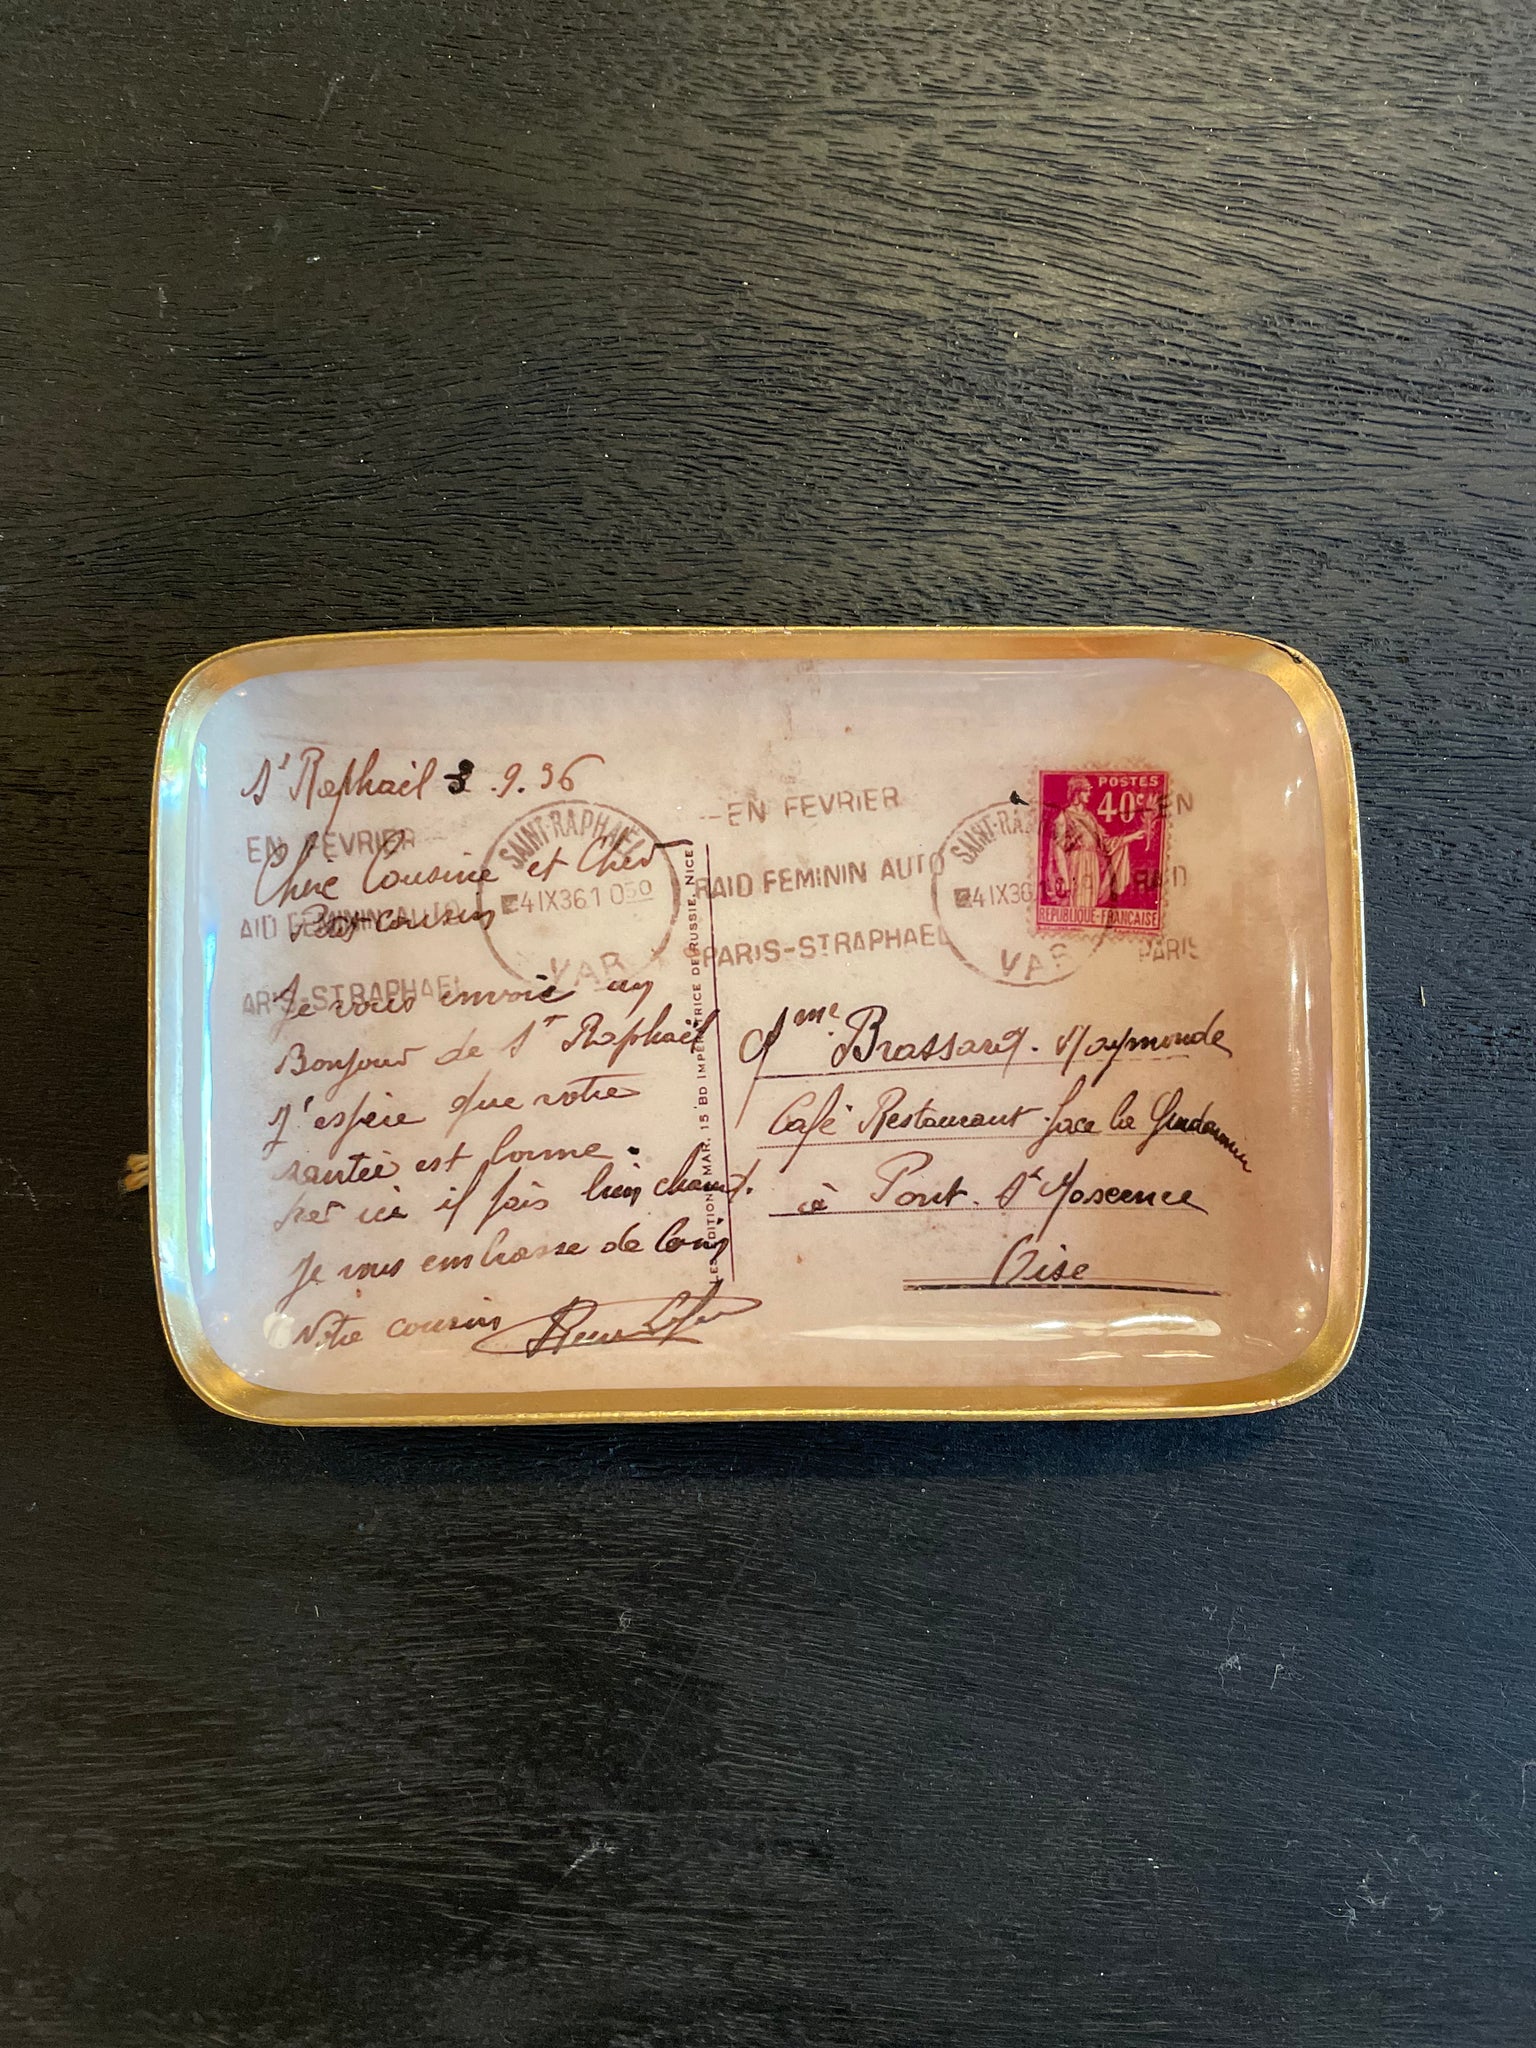 St Raphaël 3.9.36
EN FEVRIER
Chère Cousine et Cher
AID FEMININ AUTO
cousin
ARIS-ST RAPHAEL
Je vous envoie un
Bonjour de St Raphaël
J'espère que votre
santée est bonne.
ici il fais bien chaud.
Je vous embrasse de loin
Votre cousin
SAINT-RAPHAEL
4 IX 36 10
VAR
LES EDITIONS MAR, 15 BD IMPERATRICE DE RUSSIE, NICE
EN FEVRIER
RAID FEMININ AUTO
PARIS-ST RAPHAEL
SAINT-RA
4 IX 36
VAR
POSTES
40c
REPUBLIQUE-FRANCAISE
EN
RAID
PARIS
Mme Brassard. Raymonde
Café Restaurant face la
à Pont. St Maxence
Oise